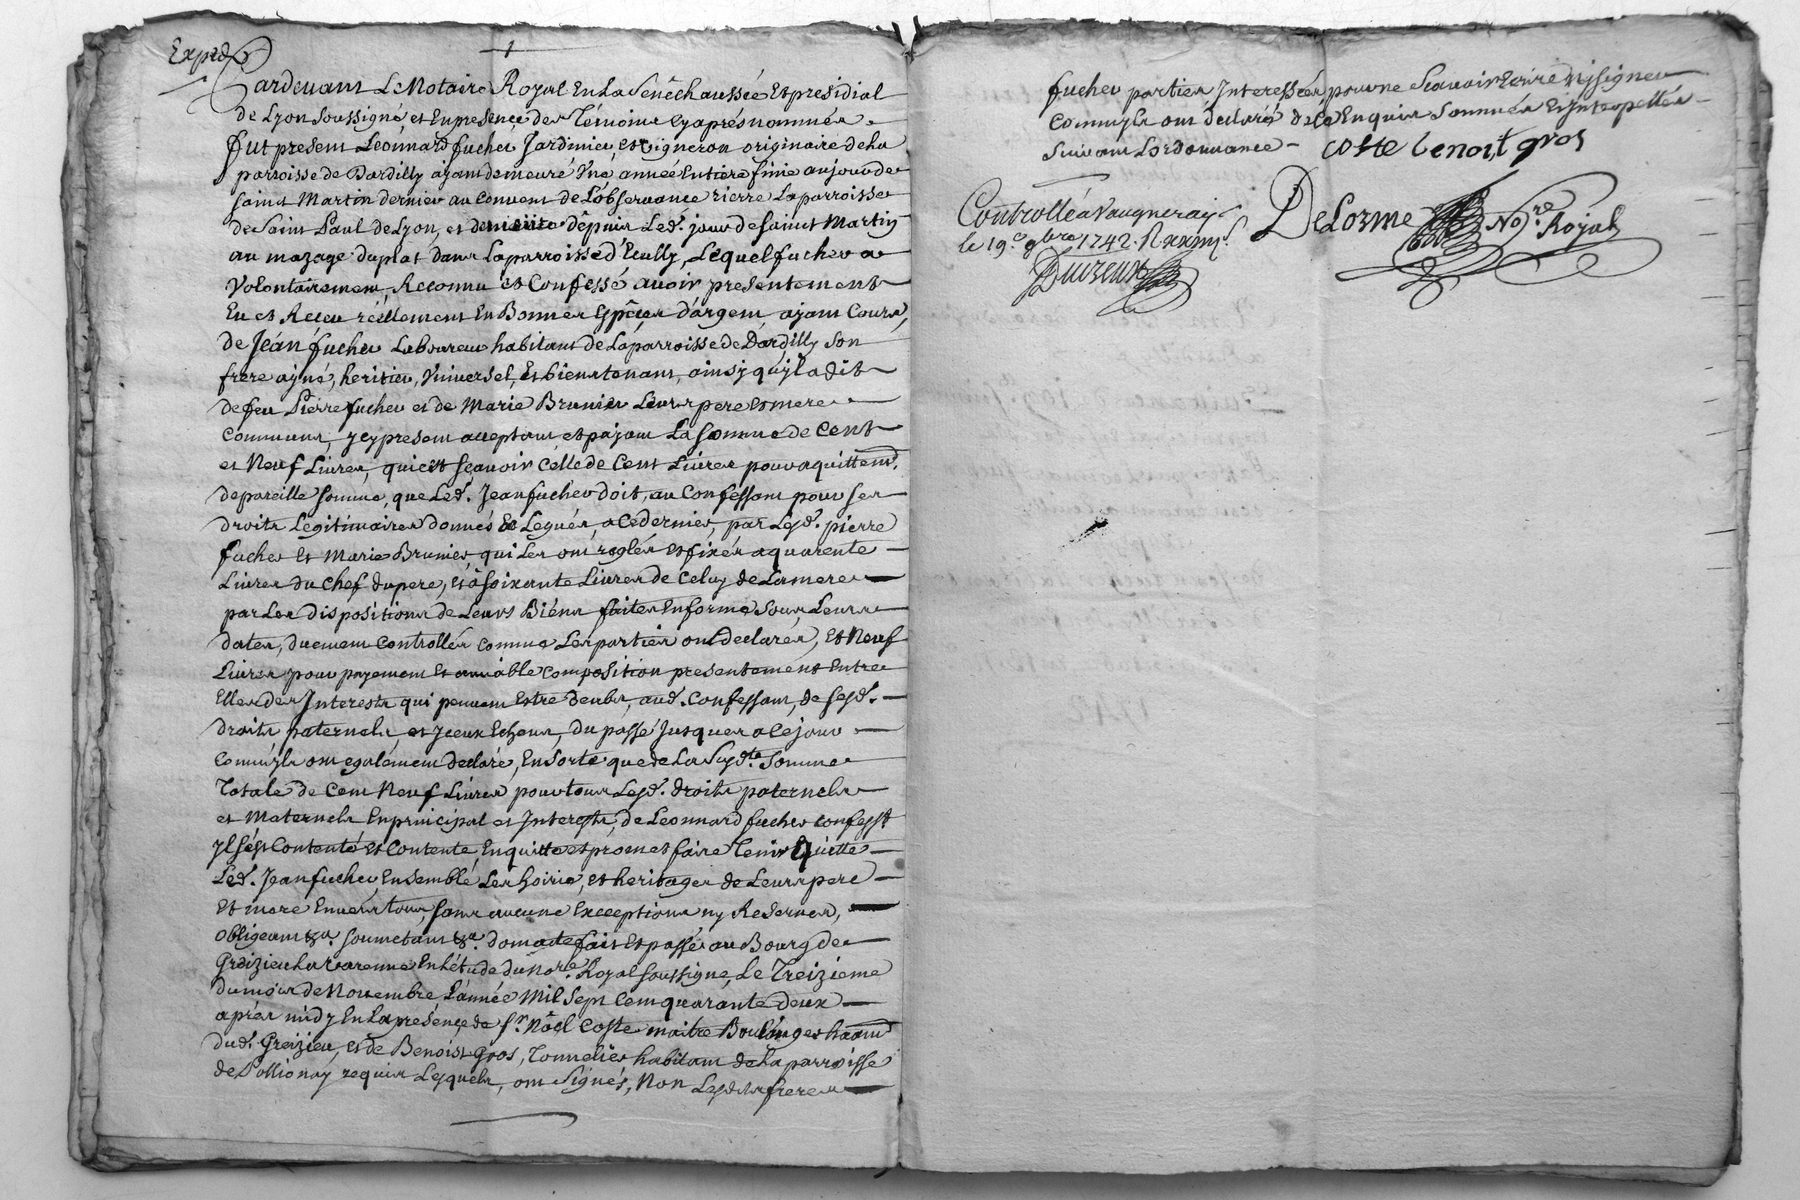 Expédᵉ
Pardevant Le Notaire Royal En La Senêchaussée Et presidial
de Lyon soussigné et En presence des Témoins cy après nommés
fut present Leonnard fucher Jardinier et vigneron originaire de La
parroisse de Dardilly ayant demeuré Une année Entiere finie au jour de
saint Martin dernier au Convent de L'observance rierre La parroisse
de Saint Paul de Lyon, et demeure dépuis Led. jour de saint Martin
au mazage du plat dans La parroisse d'Ecully, Lequel fucher a
Volontairement, Reconnu et Confessé avoir presentement
Eu et Receu réellement En Bonnes Espêces d'argent ayant Cours,
de Jéan fucher Laboureur habitant de La parroisse de Dardilly son
frere ayné, heritier, Universel, Et bienstenant, ainsy qu'yl a dit
de feu Pierre fucher et de Marie Brunier Leurs pere et mere
communs, ycy present acceptant et payant La somme de Cent
et Neuf Livres, qui est sçavoir Celle de Cent Livres pour aquittemt.
de pareille somme, que Led. Jean fucher doit, au Confessant pour ses
droits Legitimaires donnés Et Legués, a Ce dernier, par Lesd. pierre
fucher Et Marie Brunier, qui Les ont reglés et fixés a quarente
Livres du Chef du pere, Et à soixante Livres de Celuy de La mere
par Les dispositions de Leurs Biéns faites En forme sous Leurs
dates, duement Controllés comme Les parties ont declarés, Et Neuf
Livres pour payement Et amiâble Composition presentement Entre
Elles des Interests qui peuvent Estre deubs, aud. Confessant, de sesd.
droits paternels, et yceux Echeus, du passé Jusques a Ce jour
Comm'yls ont également declaré, En sorte que de La susdte. Somme
Totale de Cent Neuf Livres pour tous Lesd. droits paternels
et Maternels En principal et Interests, de Leonnard fucher confesst
yl s'est Contenté et Contente, En quitte et promet faire Tenir Quitte
Led. Jean fucher, Ensemble Les hoirie, et heritages de Leurs pere
Et mere Envers tous, sans aucune Exceptions ny Reserves,
obligeant &a. soumetant &a. dont acte fait Et passé au Bourg de
Greizieu La Varenne En L'étude du Nore. Royal soussigné, Le Treizieme
du mois de Novembre L'année Mil Sept Cent quarante deux
aprés midy En La présençe de sr. Nöel Coste maitre Boulanger habitt
dud. Greizieu, et de Benoist Gros, Tonnelier habitant de La parroisse
de Pollionay requis Lesquels, ont Signés, Non Lesdits freres
fucher parties Interessées pour ne Scavoir Ecrire ny signer
comm'yls ont declarés de ce Enquis Sommés Et Interpellés
suivant L'ordonnance
coste benoit gros
Controllé a Vaugneray
le 19.e 9bre 1742.
DeLorme Nore. Royal